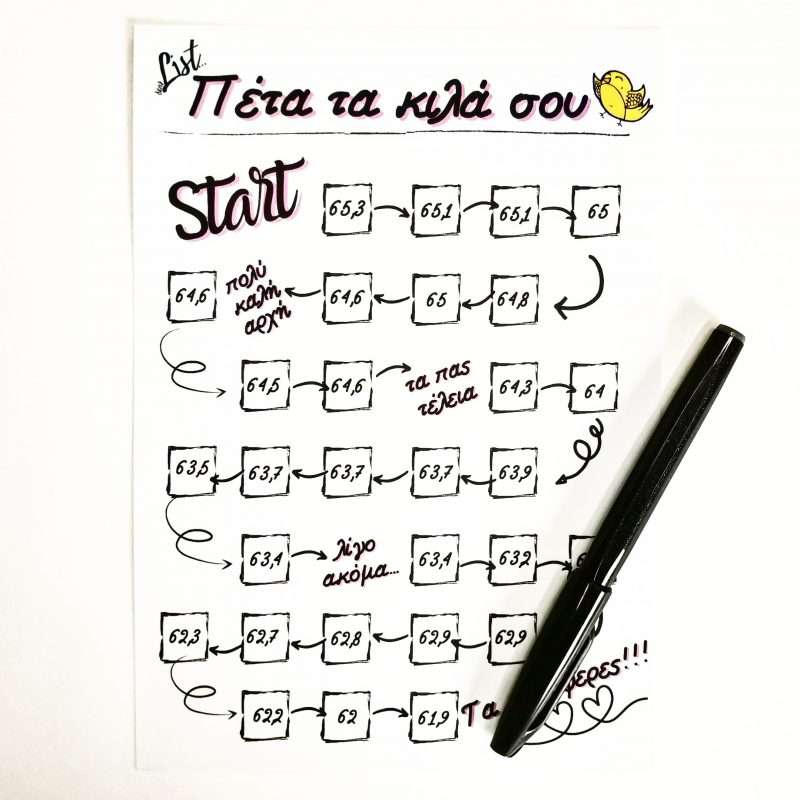 List...
Πέτα τα κιλά σου
Start
65,3 65,1 65,1 65
64,6 πολύ καλή αρχή 64,6 65 64,8
64,5 64,6 τα πας τέλεια 64,3 64
63,5 63,7 63,7 63,7 63,9
63,4 λίγο ακόμα... 63,4 632
62,3 62,7 62,8 62,9 62,9
622 62 61,9 Τα